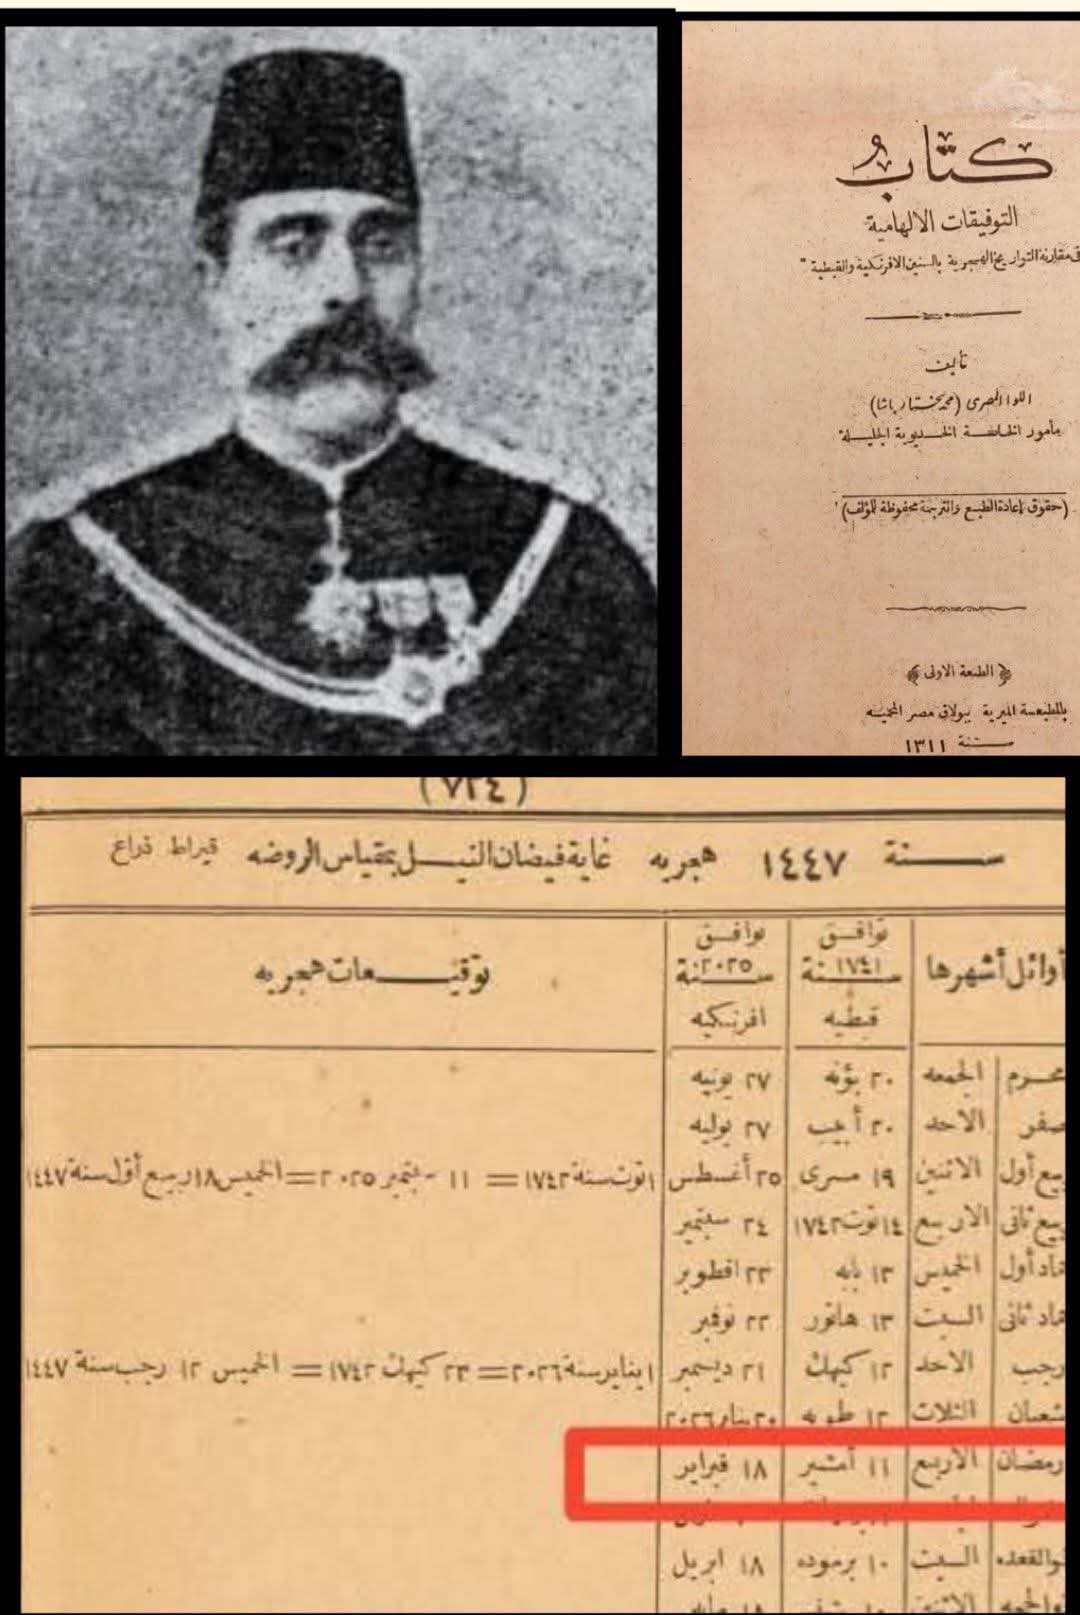 كتاب
التوفيقات الالهامية
فى مقارنة التواريخ الهجرية بالسنين الافرنكية والقبطية
تأليف
اللوا المصرى (محمد مختار باشا)
مأمور الخاصة الخديوية الجليلة
(حقوق اعادة الطبع والترجمة محفوظة للمؤلف)
﴿ الطبعة الاولى ﴾
بالمطبعة الميرية ببولاق مصر المحميه
سنة ١٣١١
(٧٢٤)
سنة ١٤٤٧ هجريه غاية فيضان النيل بمقياس الروضه قيراط ذراع
أوائل أشهرها توافق سنة ١٧٤١ قبطيه توافق سنة ٢٠٢٥ افرنكيه توقيعات هجريه
محرم الجمعه ٢٠ بؤنه ٢٧ يونيه
صفر الاحد ٢٠ أبيب ٢٧ يوليه
ربيع أول الاثنين ١٩ مسرى ٢٥ أغسطس ١ توت سنة ١٧٤٢ = ١١ سبتمبر ٢٠٢٥ = الخميس ١٨ ربيع أول سنة ١٤٤٧
ربيع ثانى الاربع ١٤ توت ١٧٤٢ ٢٤ سبتمبر
جماد أول الخميس ١٣ بابه ٢٣ اقطوبر
جماد ثانى السبت ١٣ هاتور ٢٢ نوفمبر
رجب الاحد ١٢ كيهك ٢١ ديسمبر ١ يناير سنة ٢٠٢٦ = ٢٣ كيهك ١٧٤٢ = الخميس ١٢ رجب سنة ١٤٤٧
شعبان الثلاث ١٢ طوبه ٢٠ يناير ٢٠٢٦
رمضان الاربع ١١ أمشير ١٨ فبراير
ذوالقعده السبت ١٠ برموده ١٨ ابريل